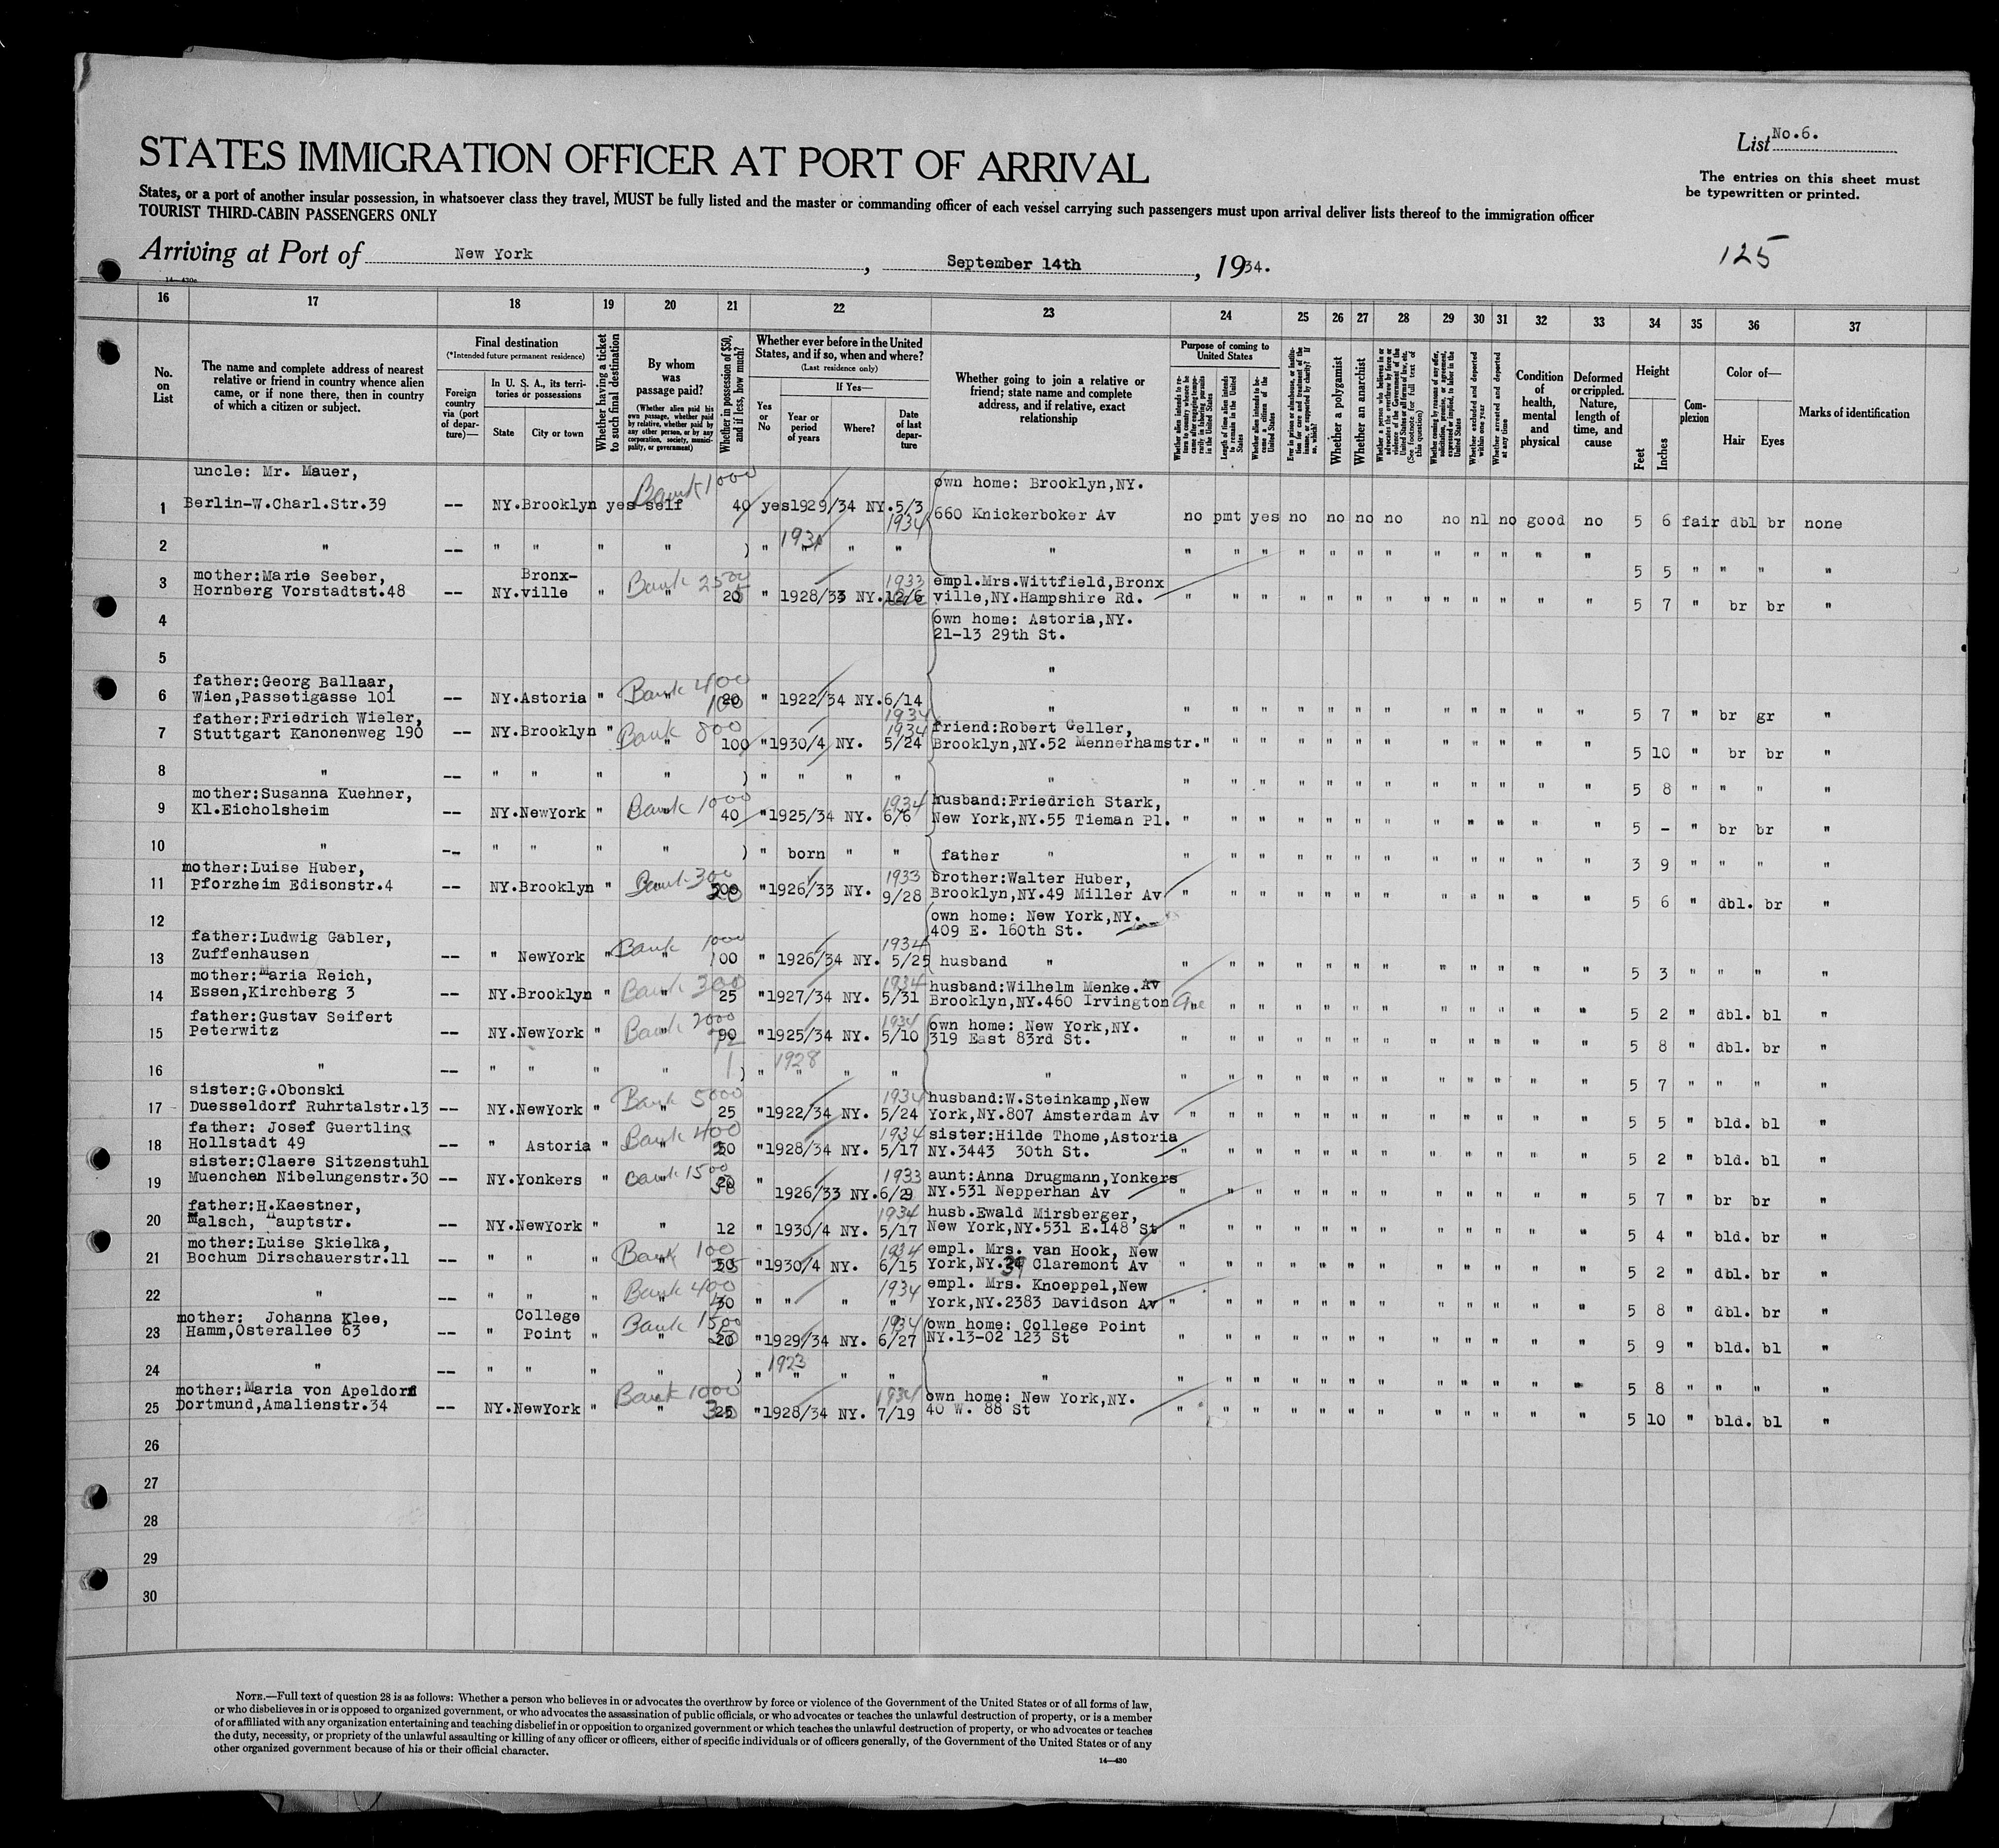 List No.6.
STATES IMMIGRATION OFFICER AT PORT OF ARRIVAL
The entries on this sheet must
be typewritten or printed.
States, or a port of another insular possession, in whatsoever class they travel, MUST be fully listed and the master or commanding officer of each vessel carrying such passengers must upon arrival deliver lists thereof to the immigration officer
TOURIST THIRD-CABIN PASSENGERS ONLY
Arriving at Port of New York, September 14th, 1934.
125
16 17 18 19 20 21 22 23 24 25 26 27 28 29 30 31 32 33 34 35 36 37
No. on List
The name and complete address of nearest relative or friend in country whence alien came, or if none there, then in country of which a citizen or subject.
Final destination
(*Intended future permanent residence)
Foreign country via (port of departure)—
In U. S. A., its territories or possessions
State City or town
Whether having a ticket to such final destination
By whom was passage paid?
(Whether alien paid his own passage, whether paid by relative, whether paid by any other person, or by any corporation, society, municipality, or government)
Whether in possession of $50, and if less, how much?
Whether ever before in the United States, and if so, when and where?
(Last residence only)
Yes or No
If Yes—
Year or period of years
Where?
Date of last departure
Whether going to join a relative or friend; state name and complete address, and if relative, exact relationship
Purpose of coming to United States
Length of time alien intends to remain in the United States
Whether alien intends to become a citizen of the United States
Whether a polygamist
Whether an anarchist
Whether excluded and deported within one year
Whether arrested and deported at any time
Condition of health, mental and physical
Deformed or crippled. Nature, length of time, and cause
Height
Feet Inches
Complexion
Color of—
Hair Eyes
Marks of identification
uncle: Mr. Mauer, Bank 1000 own home: Brooklyn,NY.
1 Berlin-W.Charl.Str.39 -- NY.Brooklyn yes self 40 yes 1929/34 NY. 5/3 1934 660 Knickerboker Av no pmt yes no no no no no nl no good no 5 6 fair dbl br none
2 " -- " " " " ) " " " " " " " " " " " " " " " " " " 5 5 " " " "
mother:Marie Seeber, Bronx- Bank 2500 1933 empl.Mrs.Wittfield,Bronx
3 Hornberg Vorstadtst.48 -- NY.ville " " 20 " 1928/33 NY.12/6 ville,NY.Hampshire Rd. " " " " " " " " " " " " 5 7 " br br "
4 own home: Astoria,NY.
21-13 29th St.
5 "
father:Georg Ballaar, Bank 400
6 Wien,Passetigasse 101 -- NY.Astoria " " 100 " 1922/34 NY.6/14 1934 " " " " " " " " " " " " " 5 7 " br gr "
father:Friedrich Wieler, Bank 800 1934 friend:Robert Geller,
7 Stuttgart Kanonenweg 190 -- NY.Brooklyn " " 100 " 1930/4 NY. 5/24 Brooklyn,NY.52 Mennerhamstr. " " " " " " " " " " " " 5 10 " br br "
8 " -- " " " " ) " " " " " " " " " " " " " " " " " " 5 8 " " " "
mother:Susanna Kuehner, Bank 1000 1934 husband:Friedrich Stark,
9 Kl.Eicholsheim -- NY.NewYork " " 40 " 1925/34 NY. 6/6 New York,NY.55 Tieman Pl. " " " " " " " " " " " " 5 - " br br "
10 " -- " " " " ) " born " " father " " " " " " " " " " " " " 3 9 " " " "
mother:Luise Huber, Bank 300 1933 brother:Walter Huber,
11 Pforzheim Edisonstr.4 -- NY.Brooklyn " " " 1926/33 NY. 9/28 Brooklyn,NY.49 Miller Av " " " " " " " " " " " " 5 6 " dbl. br "
12 own home: New York,NY.
409 E. 160th St.
father:Ludwig Gabler, Bank 1000 1934
13 Zuffenhausen -- " NewYork " " 100 " 1926/34 NY. 5/25 husband " " " " " " " " " " " " " 5 3 " " " "
mother:Maria Reich, Bank 300 1934 husband:Wilhelm Menke.
14 Essen,Kirchberg 3 -- NY.Brooklyn " " 25 " 1927/34 NY. 5/31 Brooklyn,NY.460 Irvington Av Ave " " " " " " " " " " " 5 2 " dbl. bl "
father:Gustav Seifert Bank 2000 1934 own home: New York,NY.
15 Peterwitz -- NY.NewYork " " 90 " 1925/34 NY. 5/10 319 East 83rd St. " " " " " " " " " " " " 5 8 " dbl. br "
16 " -- " " " " ) " 1928 " " " " " " " " " " " " " " " " 5 7 " " " "
sister:G.Obonski Bank 5000 1934 husband:W.Steinkamp,New
17 Duesseldorf Ruhrtalstr.13 -- NY.NewYork " " 25 " 1922/34 NY. 5/24 York,NY.807 Amsterdam Av " " " " " " " " " " " " 5 5 " bld. bl "
father: Josef Guertling Bank 400 1934 sister:Hilde Thome,Astoria
18 Hollstadt 49 -- " Astoria " " " 1928/34 NY. 5/17 NY.3443 30th St. " " " " " " " " " " " " 5 2 " bld. bl "
sister:Claere Sitzenstuhl Bank 1500 1933 aunt:Anna Drugmann,Yonkers
19 Muenchen Nibelungenstr.30 -- NY.Yonkers " " " 1926/33 NY.6/29 NY.531 Nepperhan Av " " " " " " " " " " " " 5 7 " br br "
father:H.Kaestner, 1934 husb.Ewald Mirsberger,
20 Malsch, Hauptstr. -- NY.NewYork " " 12 " 1930/4 NY. 5/17 New York,NY.531 E.148 St " " " " " " " " " " " " 5 4 " bld. br "
mother:Luise Skielka, Bank 100 1934 empl. Mrs. van Hook, New
21 Bochum Dirschauerstr.11 -- " " " " " 1930/4 NY. 6/15 York,NY. Claremont Av " " " " " " " " " " " " 5 2 " dbl. br "
Bank 400 1934 empl. Mrs. Knoeppel,New
22 " -- " " " " " " " " York,NY.2383 Davidson Av " " " " " " " " " " " " 5 8 " dbl. br "
mother: Johanna Klee, College Bank 1500 1934 own home: College Point
23 Hamm,Osterallee 63 -- " Point " 20 " 1929/34 NY. 6/27 NY.13-02 123 St " " " " " " " " " " " " 5 9 " bld. bl "
24 " -- " " " " ) " 1923 " " " " " " " " " " " " " " " " 5 8 " " " "
mother:Maria von Apeldorn Bank 1000 1934 own home: New York,NY.
25 Dortmund,Amalienstr.34 -- NY.NewYork " " 25 " 1928/34 NY. 7/19 40 W. 88 St " " " " " " " " " " " " 5 10 " bld. bl "
26
27
28
29
30
NOTE.—Full text of question 28 is as follows: Whether a person who believes in or advocates the overthrow by force or violence of the Government of the United States or of all forms of law,
or who disbelieves in or is opposed to organized government, or who advocates the assassination of public officials, or who advocates or teaches the unlawful destruction of property, or is a member
of or affiliated with any organization entertaining and teaching disbelief in or opposition to organized government or which teaches the unlawful destruction of property, or who advocates or teaches
the duty, necessity, or propriety of the unlawful assaulting or killing of any officer or officers, either of specific individuals or of officers generally, of the Government of the United States or of any
other organized government because of his or their official character.
14—430